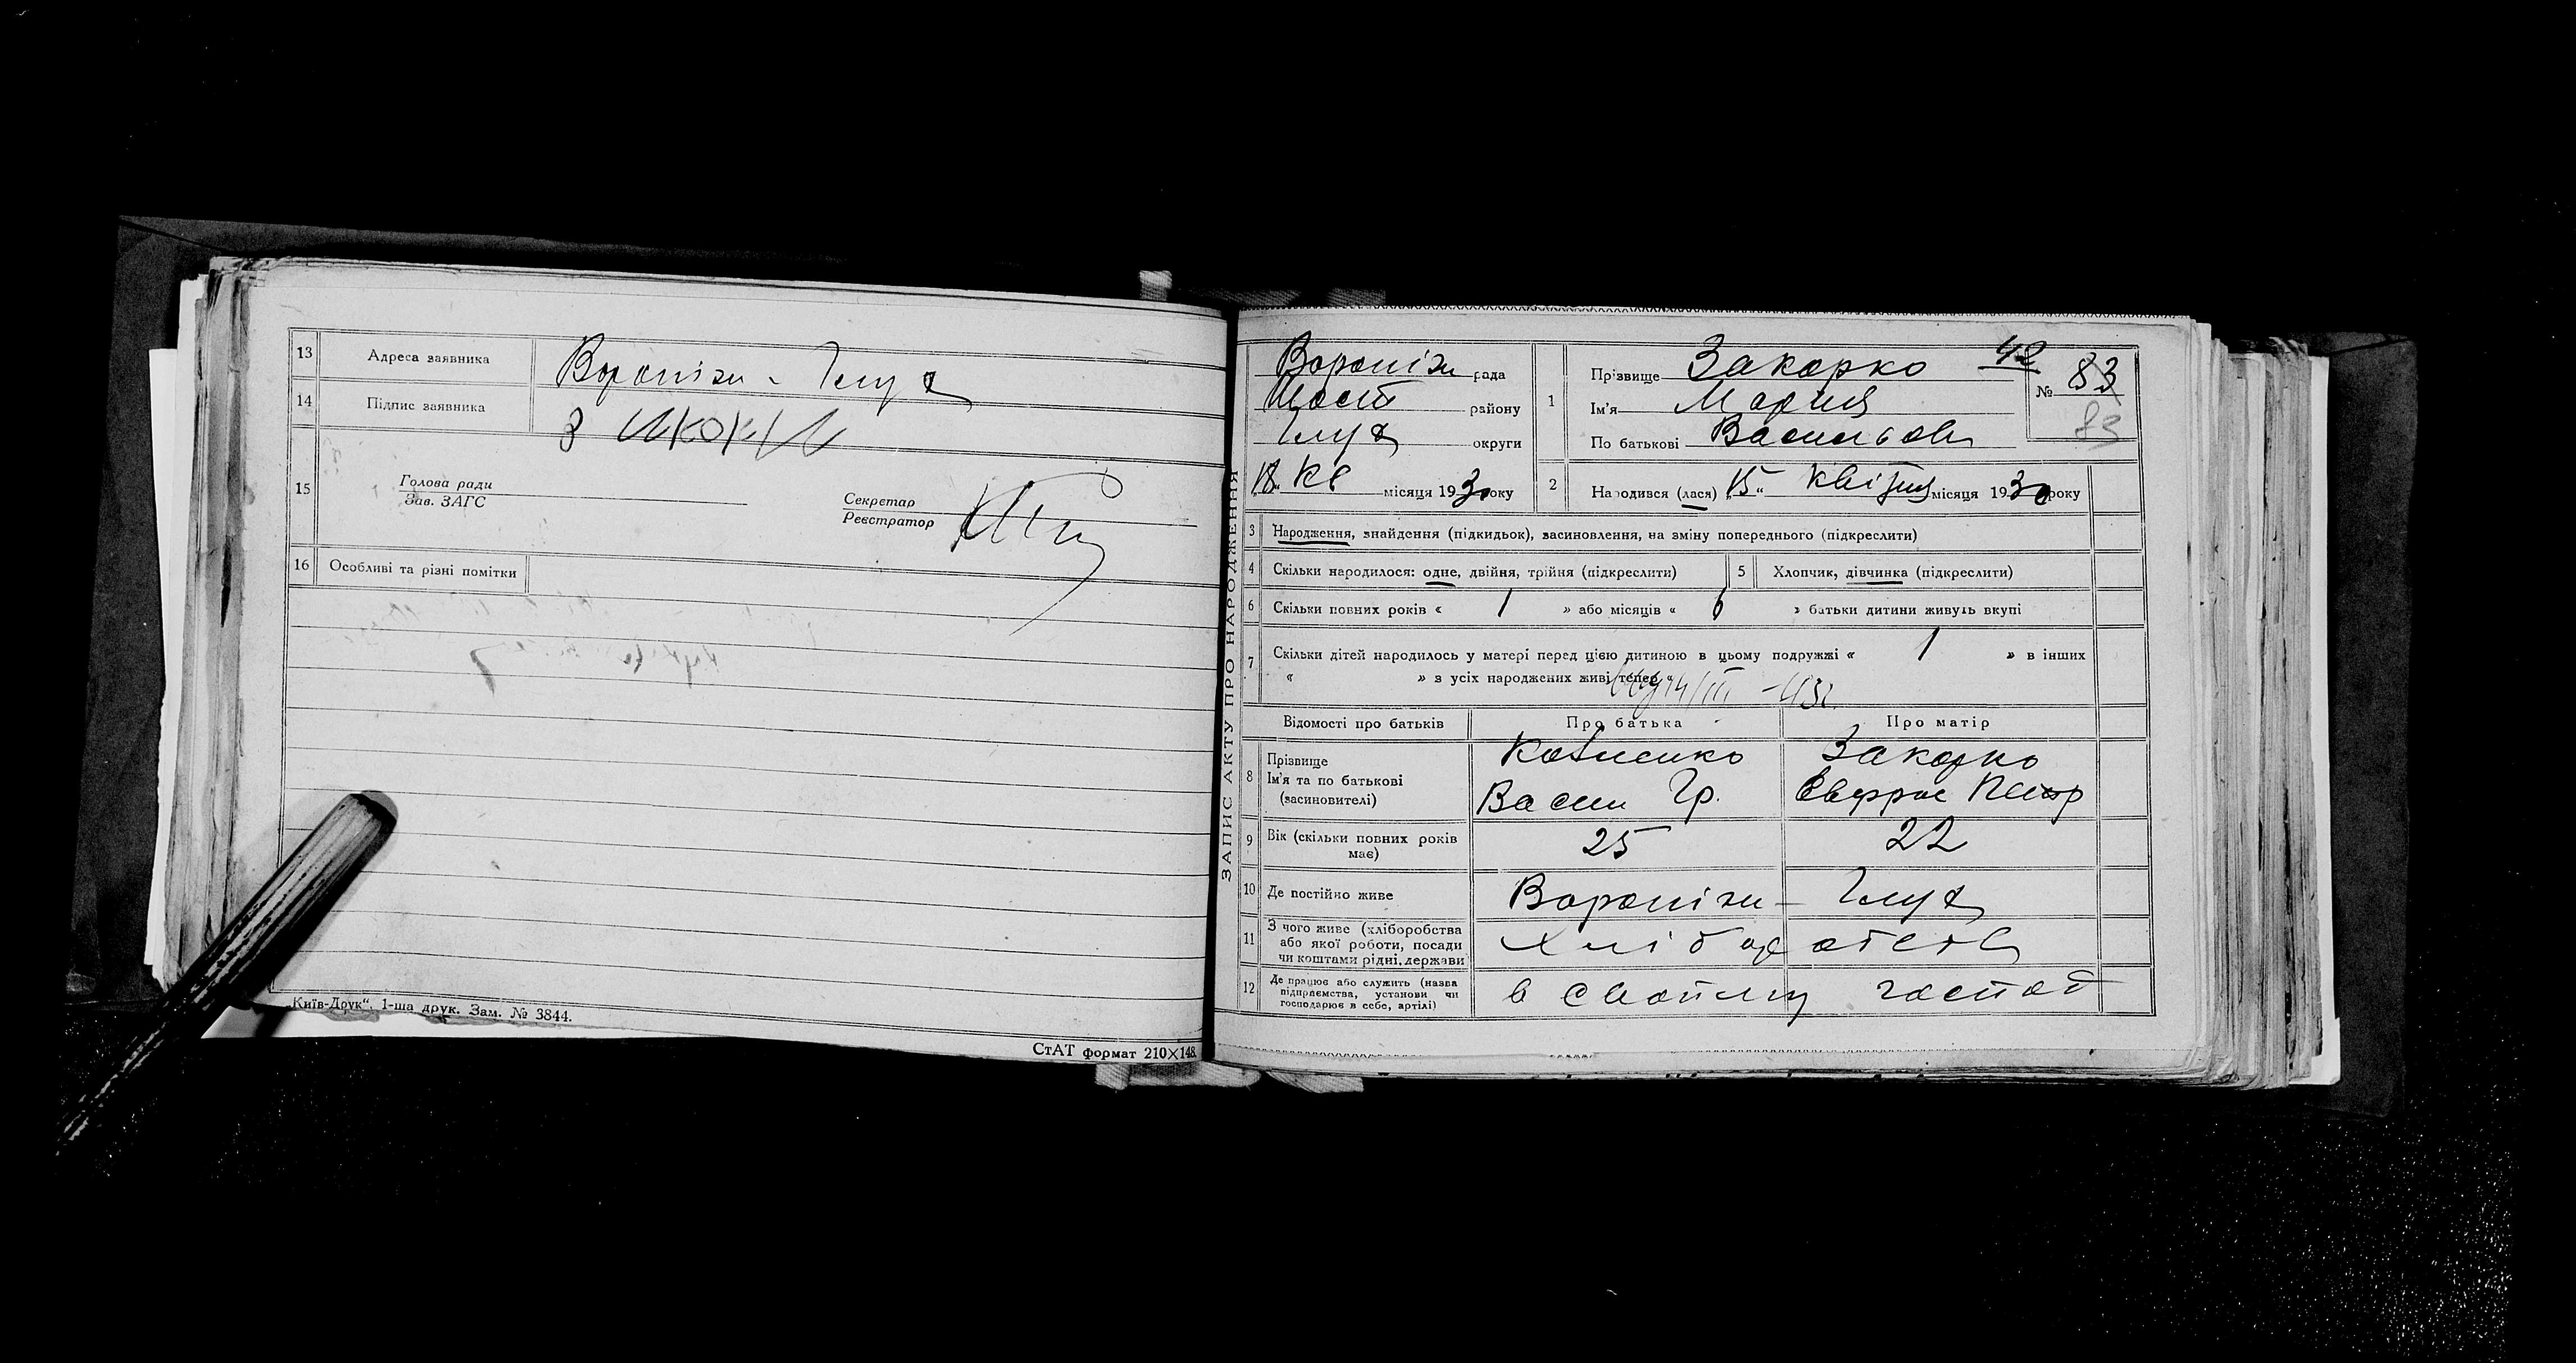 13 Адреса заявника Вороніж - Глух
14 Підпис заявника З
15 Голова ради
Зав. ЗАГС
Секретар
Реєстратор
16 Особливі та різні помітки
„Київ-Друк“. 1-ша друк. Зам. № 3844.
СтАТ формат 210×148.
ЗАПИС АКТУ ПРО НАРОДЖЕННЯ
Вороніж рада
Шост району
Глух округи
„18“ Кв місяця 1930 року
1 Прізвище Закорко 42
Ім'я Мария
По батькові Васильовн
№ 83
83
2 Народився (лася) „15“ Квітня місяця 1930 року
3 Народження, знайдення (підкидьок), васиновлення, на зміну попереднього (підкреслити)
4 Скільки народилося: одне, двійня, трійня (підкреслити) 5 Хлопчик, дівчинка (підкреслити)
6 Скільки повних років « 1 » або місяців « 6 » батьки дитини живуть вкупі
7 Скільки дітей народилось у матері перед цією дитиною в цьому подружжі « 1 » в інших
« » з усіх народжених живі тепер «
14/III
Відомості про батьків Про батька Про матір
8 Прізвище
Ім'я та по батькові
(засиновителі)
Закорко
Васил Гр.
9 Вік (скільки повних років
має) 25 22
10 Де постійно живе Вороніж - Глух
11 З чого живе (хліборобства
або якої роботи, посади
чи коштами рідні, держави
хліборобств
12 Де працює або служить (назва
підприємства, установи чи
господарює в себе, артілі)
в своїму господ